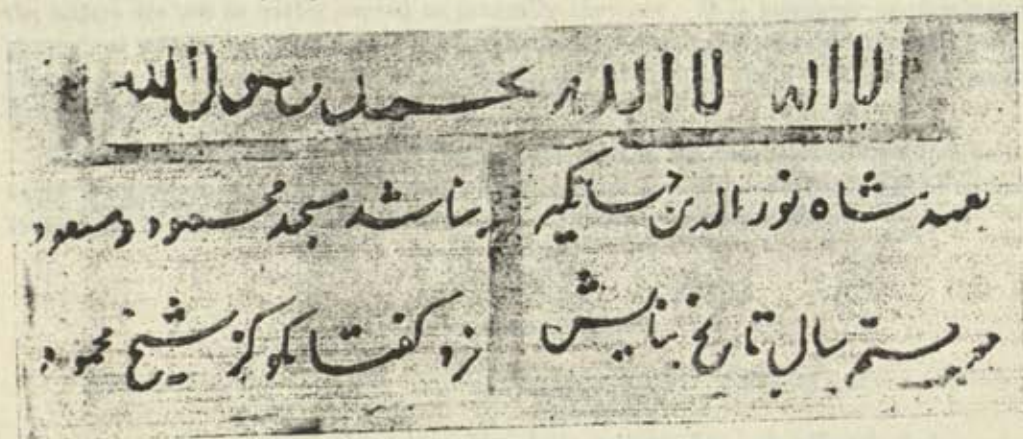 لا اله الا الله محمد رسول الله
بعهد شاه نور الدین جهانگیر بنا شد مسجد محمود و مسعود
چو جستم سال تاریخ بنایش خرد گفتا بگو کز شیخ محمود